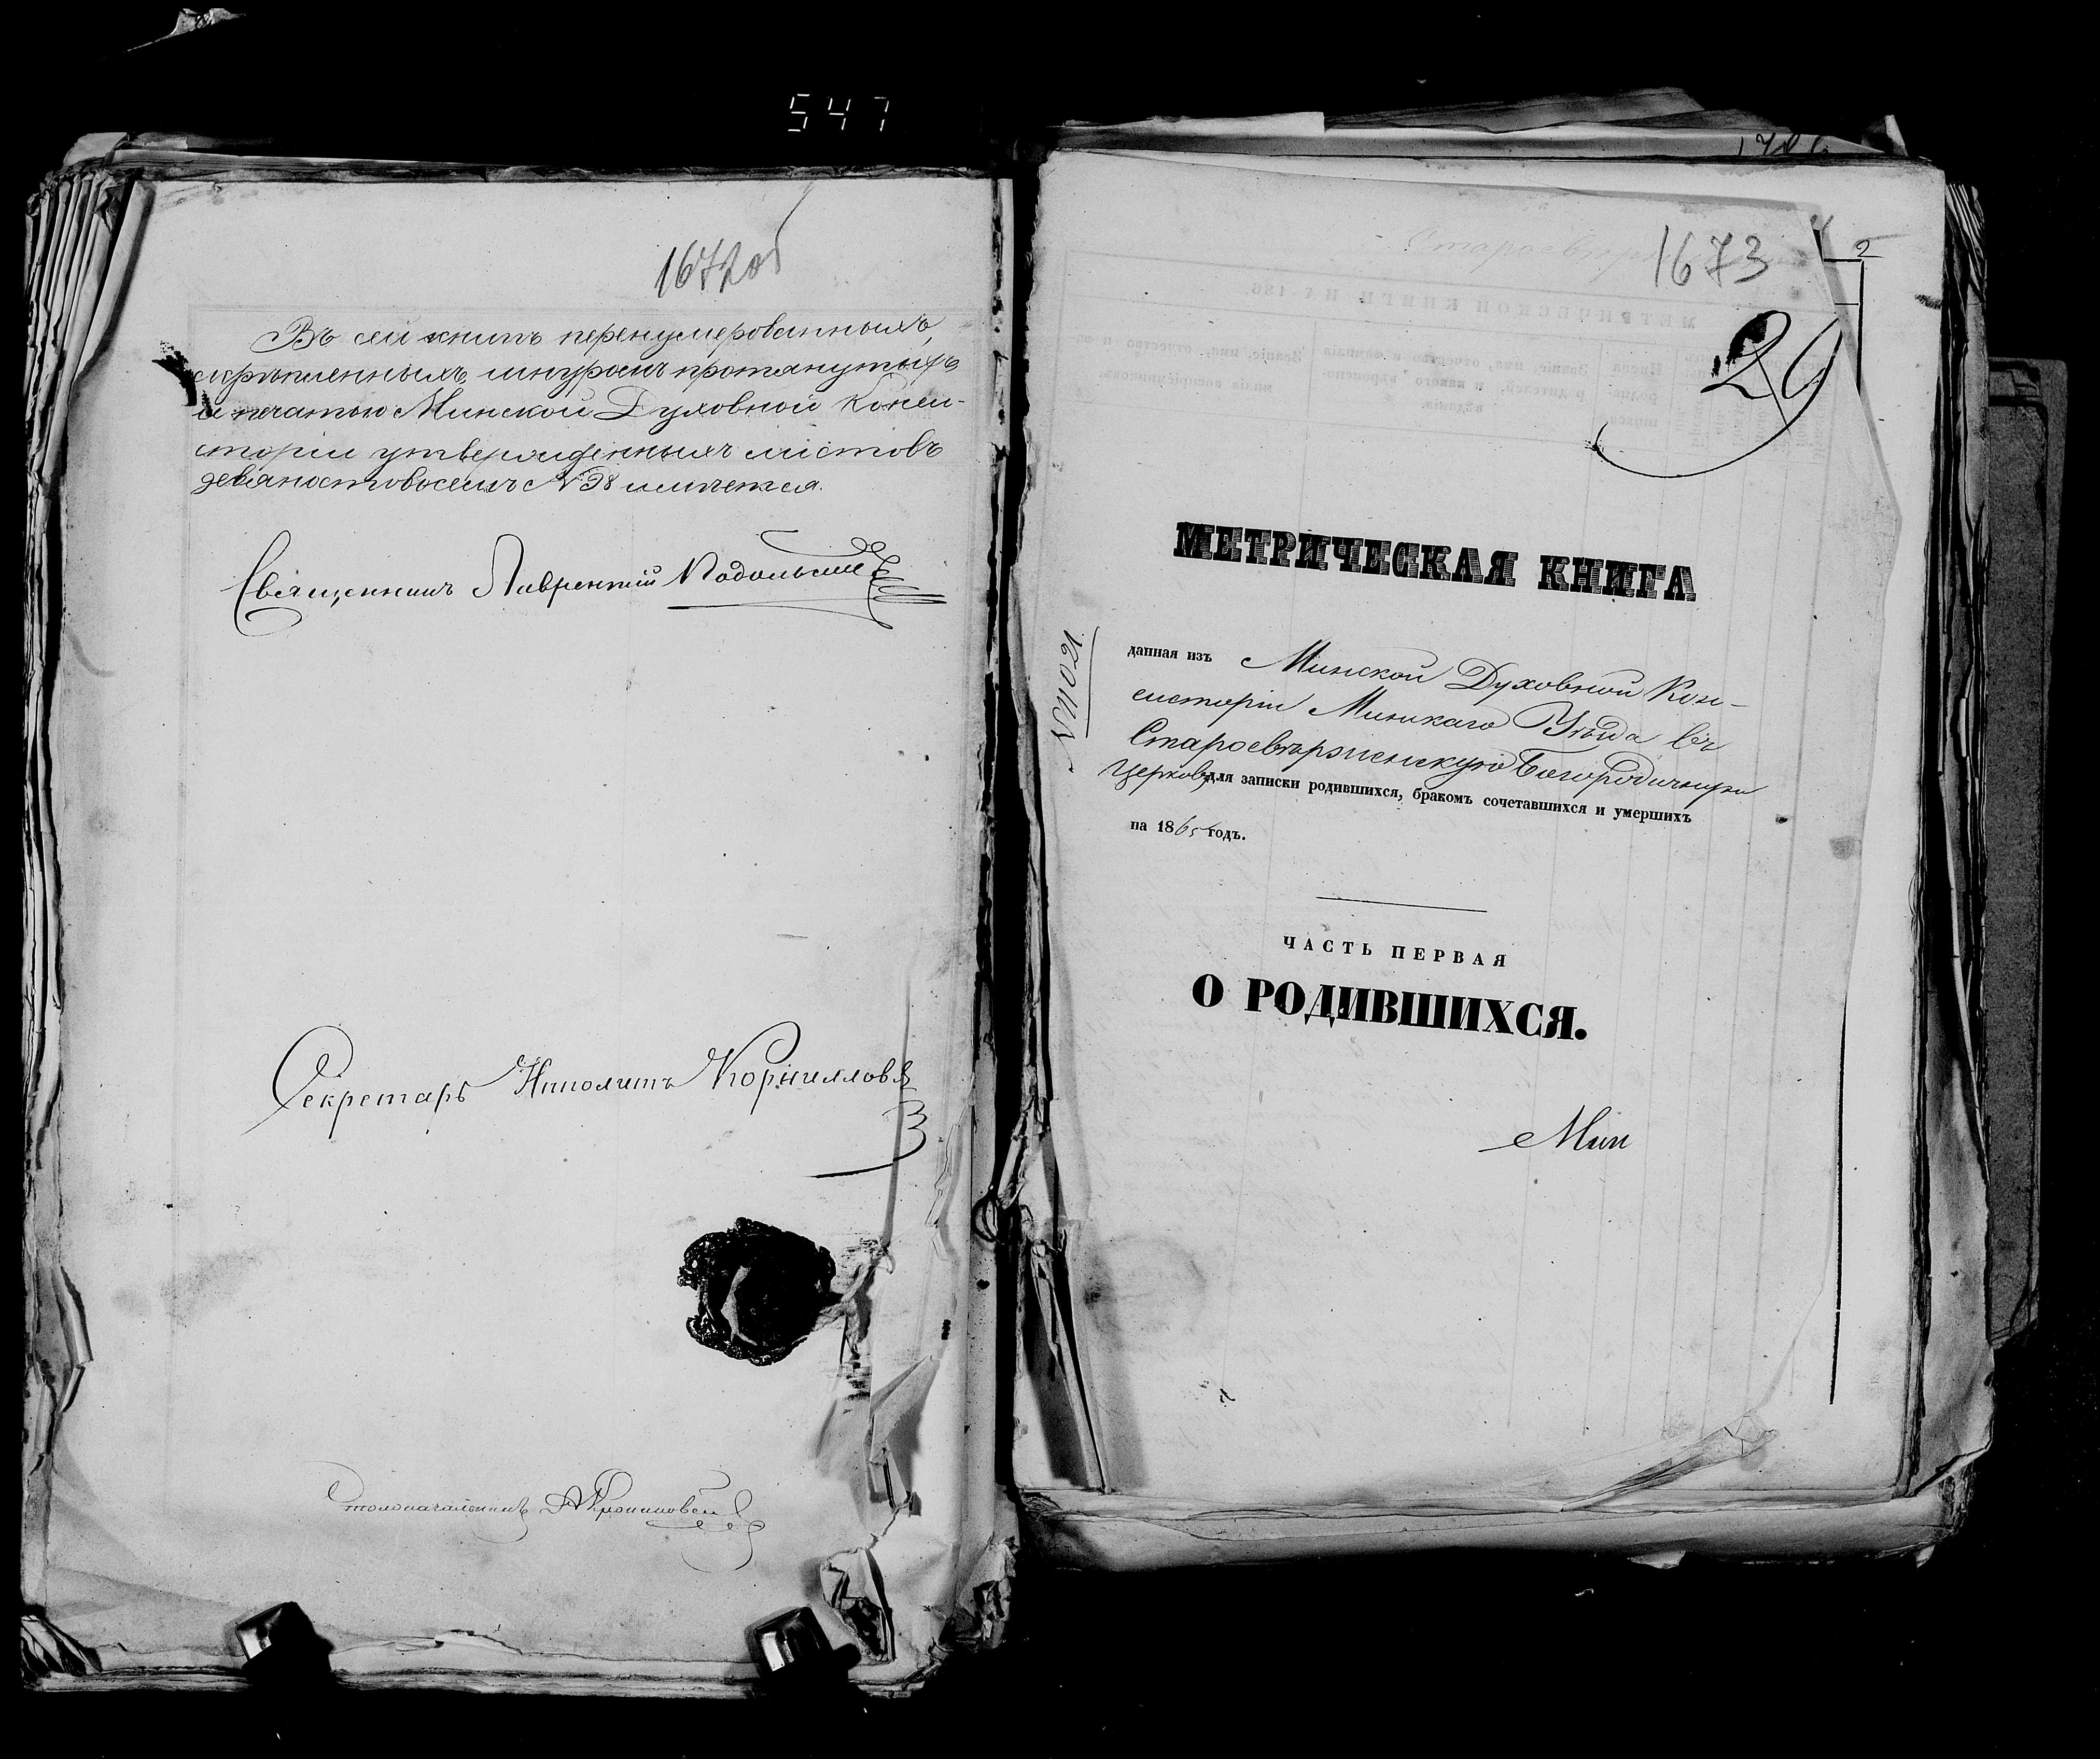 547
1672об
Въ сей книгѣ перенумерованныхъ,
скрѣпленныхъ, шнуромъ протянутыхъ
и печатью Минской Духовной Конси-
сторіи утвержденныхъ листовъ
девяностовосемь №98 имѣется.
Священникъ Лаврентій Подольскій
Секретарь Иполитъ Корнилловъ
Столоначальникъ
1673
2
29
МЕТРИЧЕСКАЯ КНИГА
№11021.
данная изъ Минской Духовной Кон-
систоріи Минскаго Уѣзда въ
Старосвѣрженскую Богородичную
Церковь для записки родившихся, бракомъ сочетавшихся и умершихъ
на 1865 годъ.
ЧАСТЬ ПЕРВАЯ
О РОДИВШИХСЯ.
Мин